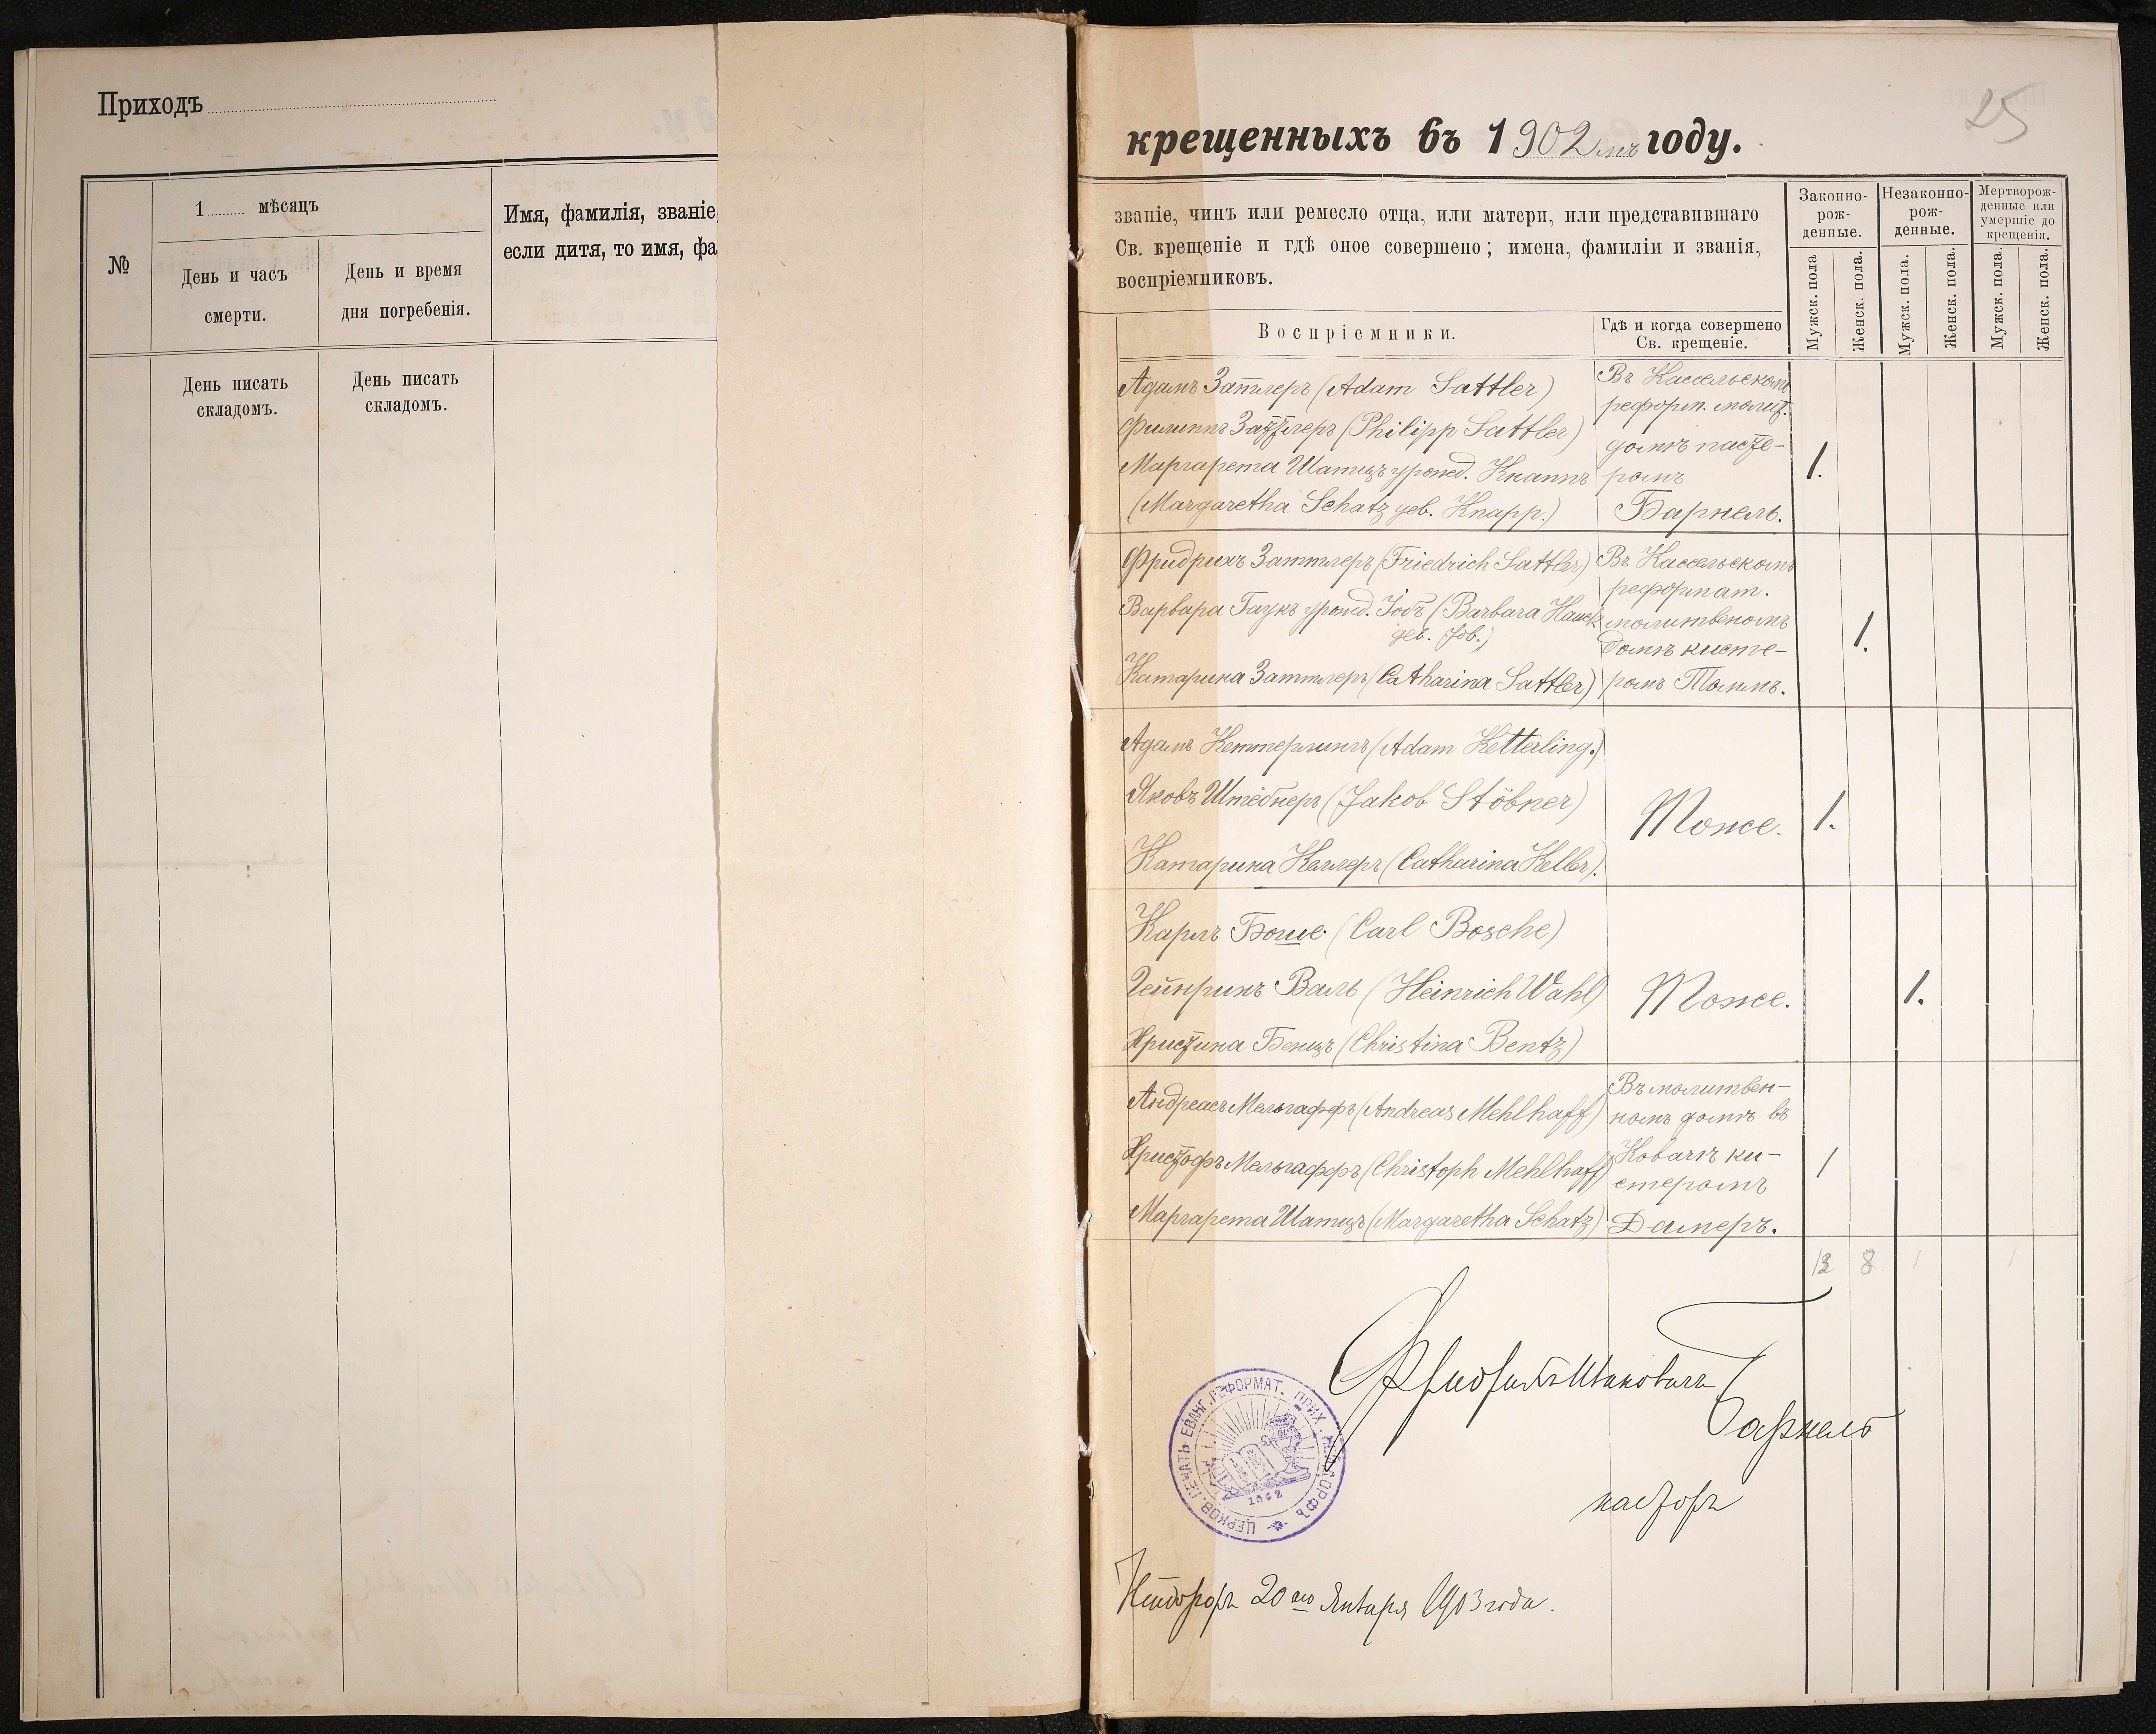 Приходъ
№
1 мѣсяцъ
День и часъ
смерти.
День и время
дня погребенія.
Имя, фамилія, званіе,
если дитя, то имя, фа
День писать
складомъ.
День писать
складомъ.
25
крещенныхъ въ 1902 мъ году.
званіе, чинъ или ремесло отца, или матери, или представившаго
Св. крещеніе и гдѣ оное совершено; имена, фамиліи и званія,
воспріемниковъ.
Законно-
рож-
денные.
Незаконно-
рож-
денные.
Мертворож-
денные или
умершіе до
крещенія.
Мужск. пола
Женск. пола.
Мужск. пола.
Женск. пола.
Мужск. пола.
Женск. пола.
Воспріемники.
Гдѣ и когда совершено
Св. крещеніе.
Адамъ Затлеръ (Adam Sattler)
Филиппъ Затлеръ (Philipp Sattler)
Маргарета Шатцъ урожд. Кнаппъ
(Margaretha Schatz geb. Knapp.)
Въ Кассельскомъ
реформ. молит.
домѣ пасто-
ромъ
Барнель.
1.
Фридрихъ Заттлеръ (Friedrich Sattler)
Варвара Гаукъ урожд. Іобъ (Barbara Hauck
geb. Job.)
Катарина Заттлеръ (Catharina Sattler)
Въ Кассельскомъ
реформат.
молитвеномъ
домѣ кисте-
ромъ Томмъ.
1.
Адамъ Кеттерлингъ (Adam Ketterling.)
Яковъ Штёбнеръ (Jakob Stöbner)
Катарина Келлеръ (Catharina Keller).
Тоже.
1.
Карлъ Боше (Carl Bosche)
Гейнрихъ Валь (Heinrich Wahl)
Христина Бенцъ (Christina Bentz)
Тоже.
1.
Андреасъ Мельгаффъ (Andreas Mehlhaff)
Христофъ Мельгаффъ (Christoph Mehlhaff)
Маргарета Шатцъ (Margaretha Schatz)
Въ молитвен-
номъ домѣ въ
Ковачѣ ки-
стеромъ
Дамеръ.
1
13 8 1 1
Барнель
пасторъ
ЦЕРКОВ. ПЕЧАТЬ ЕВАНГ. РЕФОРМАТ. ПРИХ. НЕЙДОРФЪ
1842
Нейдорфъ 20 го Января 1903 года.